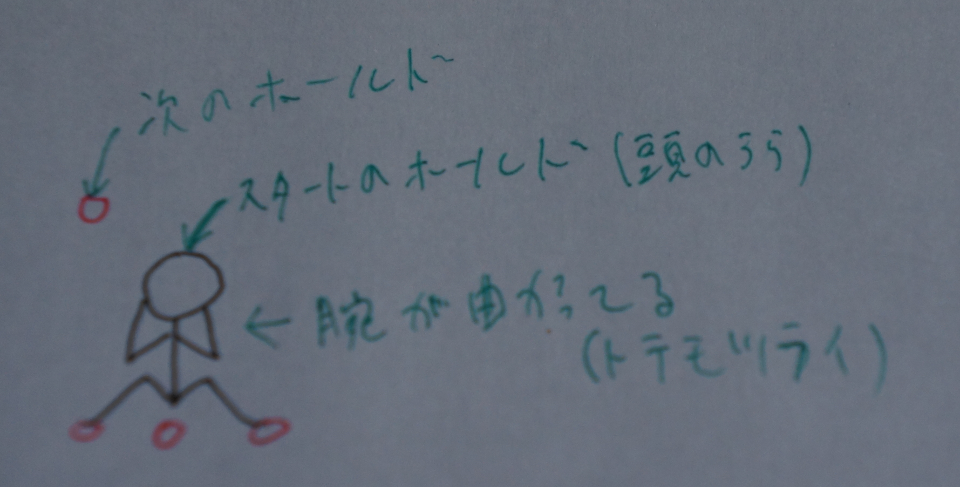 次のホールド
スタートのホールド(頭のうら)
腕が曲がってる
(トテモツライ)